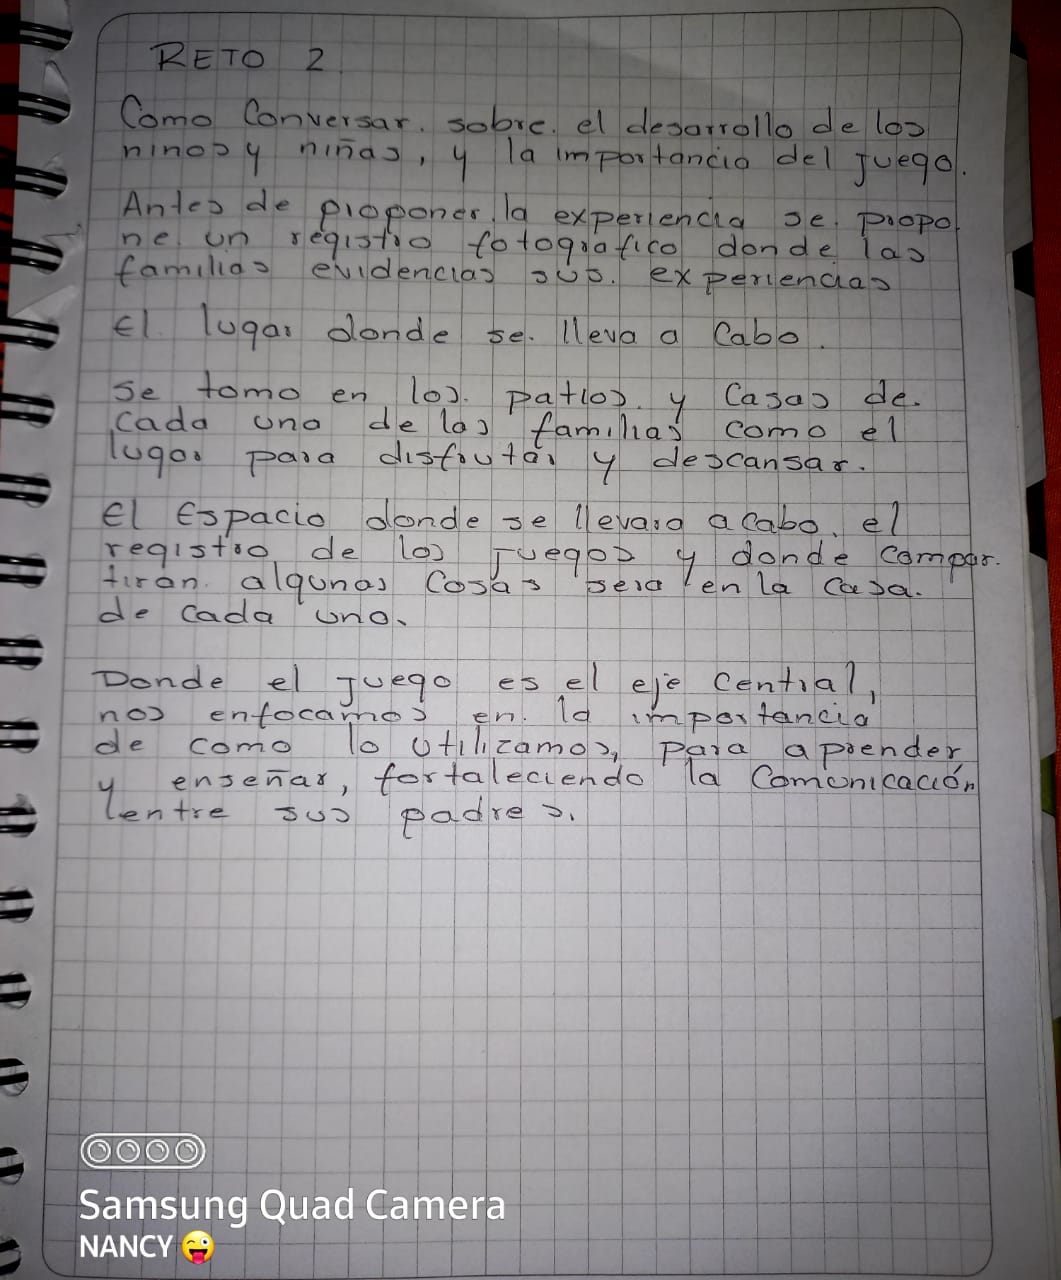 RETO 2
Como Conversar. sobre. el desarrollo de los
ninos y niñas, y la importancia del juego.
Antes de proponer la experiencia se. propo
ne. un registro fotografico donde las
familias evidencias sus. experiencias
El. lugar donde se. lleva a Cabo.
Se tomo en los. patios. y Casas de.
cada una de las familias como el
lugar para disfrutar y descansar.
El Espacio donde se llevara acabo. el
registro de los Juegos y donde compar.
tiran. algunas Cosas sera en la casa.
de cada uno.
Donde el Juego es el eje Central,
nos enfocamos en. la importancia
de como lo utilizamos, para aprender
y enseñar, fortaleciendo la Comunicación
entre sus padres.
Samsung Quad Camera
NANCY 😜